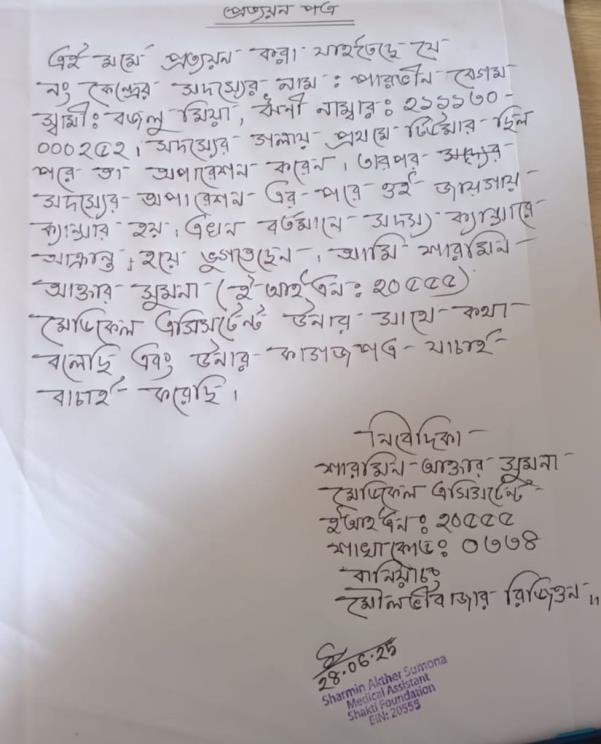 প্রত্যয়ন পত্র
এই মর্মে প্রত্যয়ন করা যাইতেছে যে
নং কেন্দ্রের সদস্যের নাম : পারভীন বেগম
স্বামী : বজলু মিয়া, ঋণী নাম্বার : ২১১১৩০-
০০০২৫২। সদস্যের গলায় প্রথমে টিউমার ছিল
পরে তা অপারেশন করেন। তারপর
সদস্যের অপারেশন এর পরে ওই জায়গায়
ক্যান্সার হয়। এখন বর্তমানে সদস্য ক্যান্সারে
আক্রান্ত হয়ে ভুগতেছেন। আমি শারমিন
আক্তার সুমনা (ই আই এন : ২০৫৫৫)
মেডিকেল এসিসটেন্ট উনার সাথে কথা
বলেছি এবং উনার কাগজপত্র যাচাই
বাচাই করেছি।
নিবেদিকা
শারমিন আক্তার সুমনা
মেডিকেল এসিসটেন্ট
ইআইএন : ২০৫৫৫
শাখা কোড : ০৭৭৪
বানিয়াচং
মৌলভীবাজার রিজিওন।।
28.06.25
Sharmin Akther Sumona
Medical Assistant
Shakti Foundation
EIN: 20555